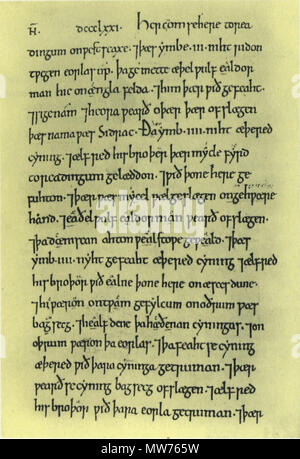 Ñ. dccclxxi. Her com se here to rea
dingum on ƿestseaxe. ⁊ þæs ymbe .iii. niht ridon
tƿegen eorlas up. þa gemette æþelƿulf ealdor
man hie on engla felda. ⁊ him þær ƿið gefeaht.
⁊ sige nam. ⁊ heora ƿearð oþer þær ofslægen
þæs nama ƿæs Sidrac. Ða ymb .iiii. niht æþered
cyning. ⁊ ælfred his broþer þær mycle fyrd
to readingum gelæddon. ⁊ ƿið þone here ge
fuhton. ⁊ þær ƿæs mycel ƿæl geslægen on gehƿæþre
hand. ⁊ eaðelƿulf ealdorman ƿearð ofslægen.
⁊ þa deniscan ahton ƿælstoƿe geƿeald. ⁊ þæs
ymb .iiii. nyht gefeaht æþered cyning ⁊ ælfred
his broþor ƿið ealne þone here on æscesdune.
⁊ hi ƿæron on tƿam gefylcum on oðrum ƿæs
bagsecg. ⁊ healfdene þa hæðenan cyningas. ⁊ on
oþrum ƿæron þa eorlas. ⁊ þa feaht se cyning
æþered ƿið þara cyninga getruman. ⁊ þær
ƿearð se cyning bagsecg ofslægen. ⁊ ælfred
his broþor ƿið þara eorla getruman. ⁊ þær
alamy
MW765W